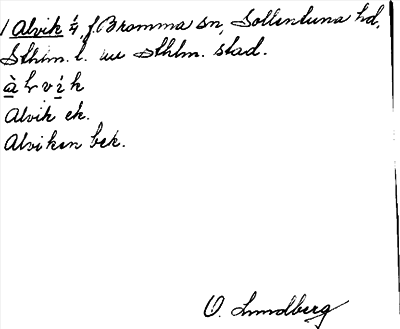 1 Alvik ¼, f. Bromma sn, Sollentuna hd,
Sthlm. l. nu Sthlm. stad.
à l v i k
Alvik ek.
Alviken bek.
O. Lundberg